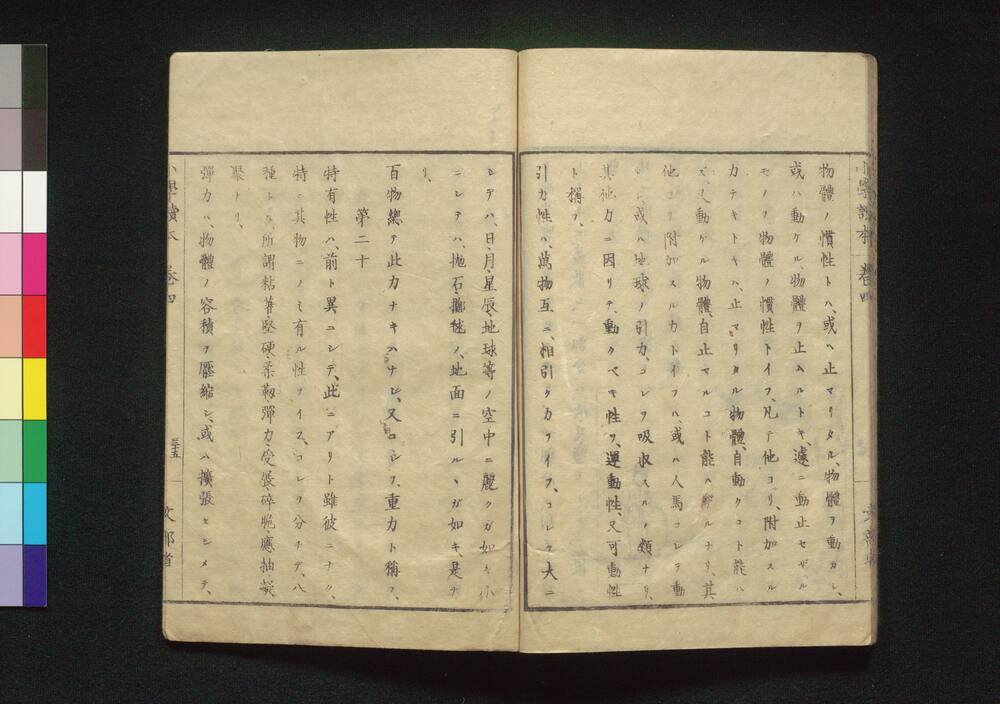 小學讀本 卷四
物體ノ慣性トハ、或ハ止マリタル、物體ヲ動カシ、
或ハ動ケル、物體ヲ止ムルトキ、遽ニ動止セザル
モノヲ物體ノ慣性トイフ、凡テ他ヨリ、附加スル
力ナキトキハ、止マリタル物體、自動クコト能ハ
ズ、又動ケル物體、自止マルコト能ハザルナリ、其
他ヨリ附加スル力トイフハ、或ハ人馬コレヲ動
或ハ地球ノ引力、コレヲ吸收スルノ類ナリ、
其他力ニ因リテ、動クベキ性ヲ、運動性、又可動性
ト稱フ、
引力性ハ、萬物互ニ、相引ク力ヲイフ、コレヲ大ニ
文部省
シテハ、日、月、星辰、地球等ノ空中ニ麗クガ如キ、小
ニシテハ、抛石、擲毬ノ、地面ニ引ルヽガ如キ、是ナ
リ、
百物總テ此力ナキハナシ、又コレヲ、重力ト稱フ、
第二十
特有性ハ、前ト異ニシテ、此ニアリト雖彼ニナク、
特ニ其物ニノミ有ル性ヲイフ、コレヲ分チテ、八
種トス、所謂粘著、堅硬、柔靱、彈力、受展、碎脆、應抽、凝
聚ナリ、
彈力ハ、物體ノ容積ヲ壓縮シ、或ハ擴張セシメテ、
小學讀本 卷四
三十五
文部省